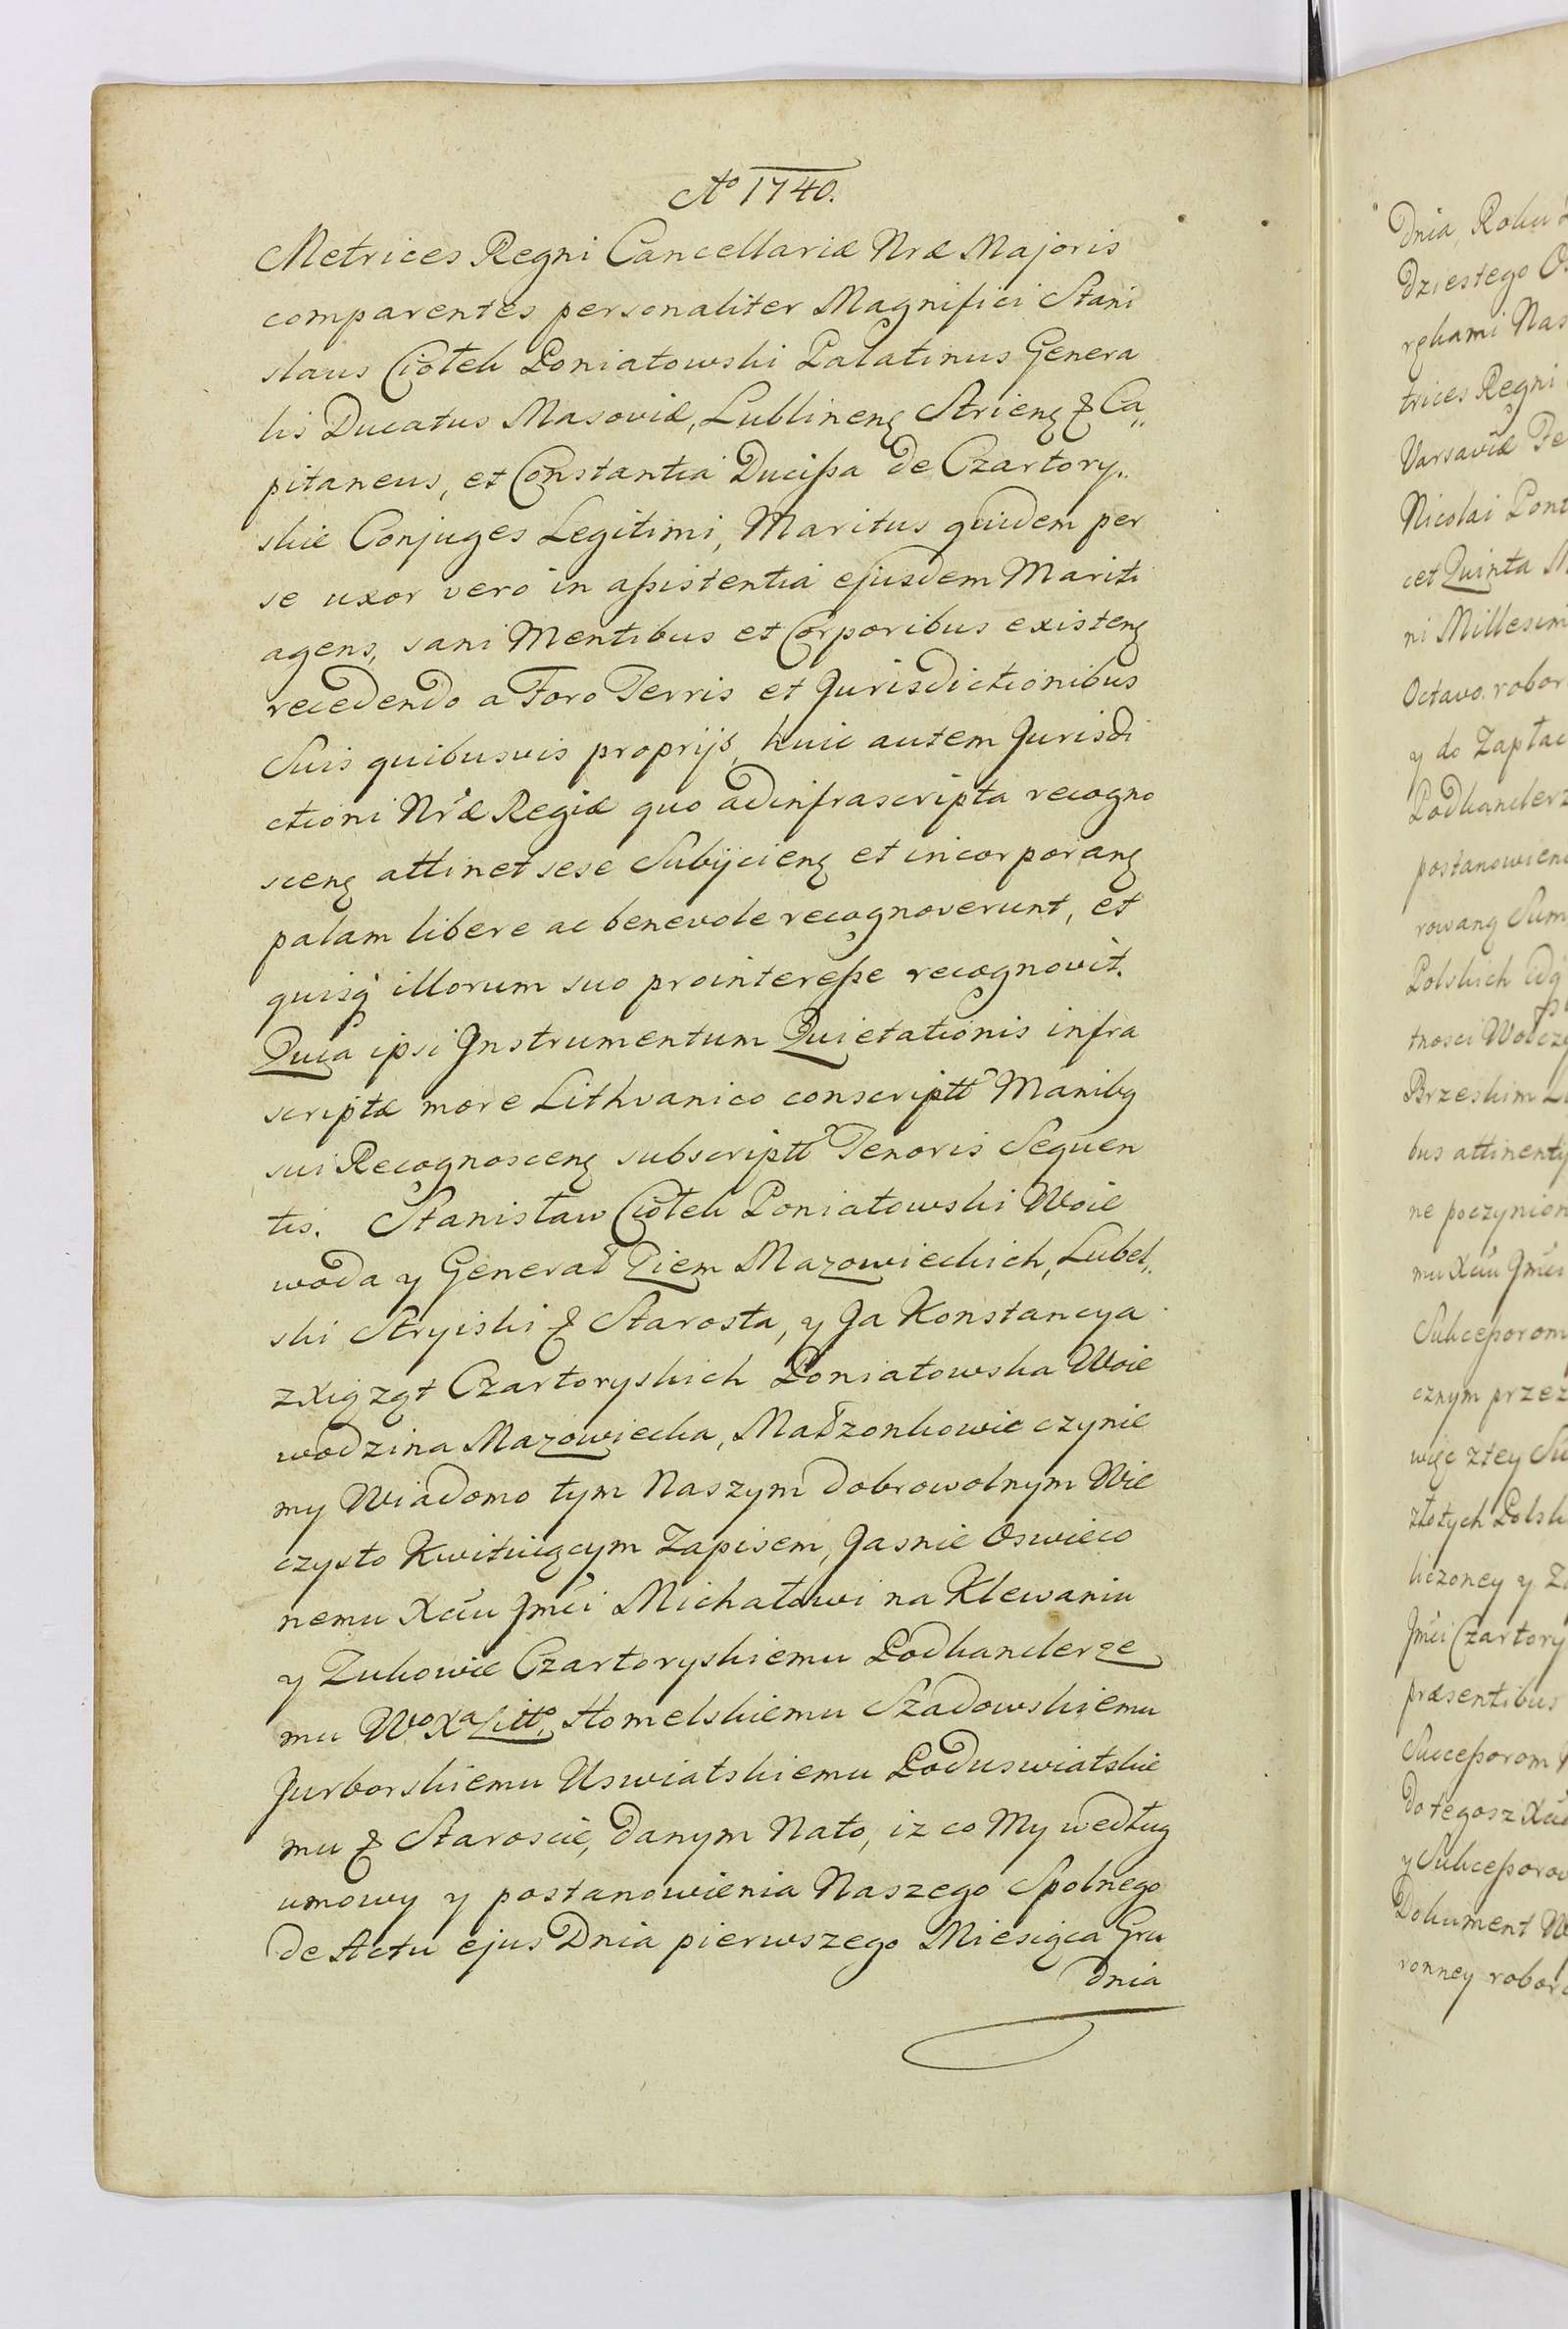 Ao 1740.
Metrices Regni Cancellariæ Nræ Majoris
comparentes personaliter Magnifici Stani
slaus Ciołek Poniatowski Palatinus Genera
lis Ducatus Masoviæ, Lublineñ Strieñ & Ca„
pitaneus, et Constantia Ducißa de Czartory„
skie Conjuges Legitimi, Maritus quidem per
se uxor vero in aßistentia ejusdem Mariti
agens, sani Mentibus et Corporibus existenȝ
recedendo a Foro Terris et Jurisdictionibus
Suis quibusvis proprijs, huic autem Jurisdi
ctioni Nræ Regiæ quo adinfrascripta recogno
scenȝ attinet sese Subijcienȝ et incorporanȝ
palam libere ac benevole recognoverunt, et
quisq̃ illorum suo prointereße recognovit.
Quia ipsi Instrumentum Quietationis infra
scriptæ more Lithvanico conscriptt̃ Manibȝ
sui Recognoscenȝ subscriptt̃ Tenoris Sequen
tis. Stanisław Ciołek Poniatowski Woie
woda y Generał Ziem Mazowieckich, Lubel„
ski Stryiski & Starosta, y Ja Konstancya
z Xiążąt Czartoryskich Poniatowska Woie
wodzina Mazowiecka, Małzonkowie czynie
my Wiadomo tym Naszym dobrowolnym Wie
czysto Kwituiącym Zapisem, Jasnie Oswieco
nemu Xciu Jmci Michałowi na Klewaniu
y Zukowie Czartoryskiemu Podkanclerze
mu Wo Xa Litto, Homelskiemu Szadowskiemu
Jurborskiemu Uswiatskiemu Poduswiatskie
mu & Staroscie, danym Nato, iz co My według
umowy y postanowienia Naszego Spolnego
de Actu ejus Dnia pierwszego Miesiąca Gru
dnia
Dnia, Roku
dziestego
rękami Nas
trices Regni
Varsaviæ Fe
Nicolai Pont
cet Quinta
ni Millesim
Octavo, robor
y do Zapłac
Podkanclerz
postanowieni
rowanȝ Sum
Polskich
tnosci Wołcz
Brzeskim Li
bus attinenty
ne poczynion
mu Xciu Jmci
Sukceßorom
cznym przez
więc ztey Su
złotych Polsk
liczoney y Z
Jmci Czartory
præsentibus
Succeßorom
do tegosz Xci
y Sukceßorow
Dokument W
ronney robor